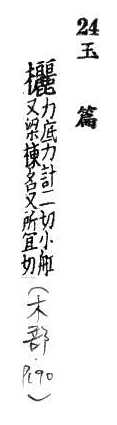 24 玉篇
欐 力底力計二切小船
又梁棟名又所宜切
(木部·P190)